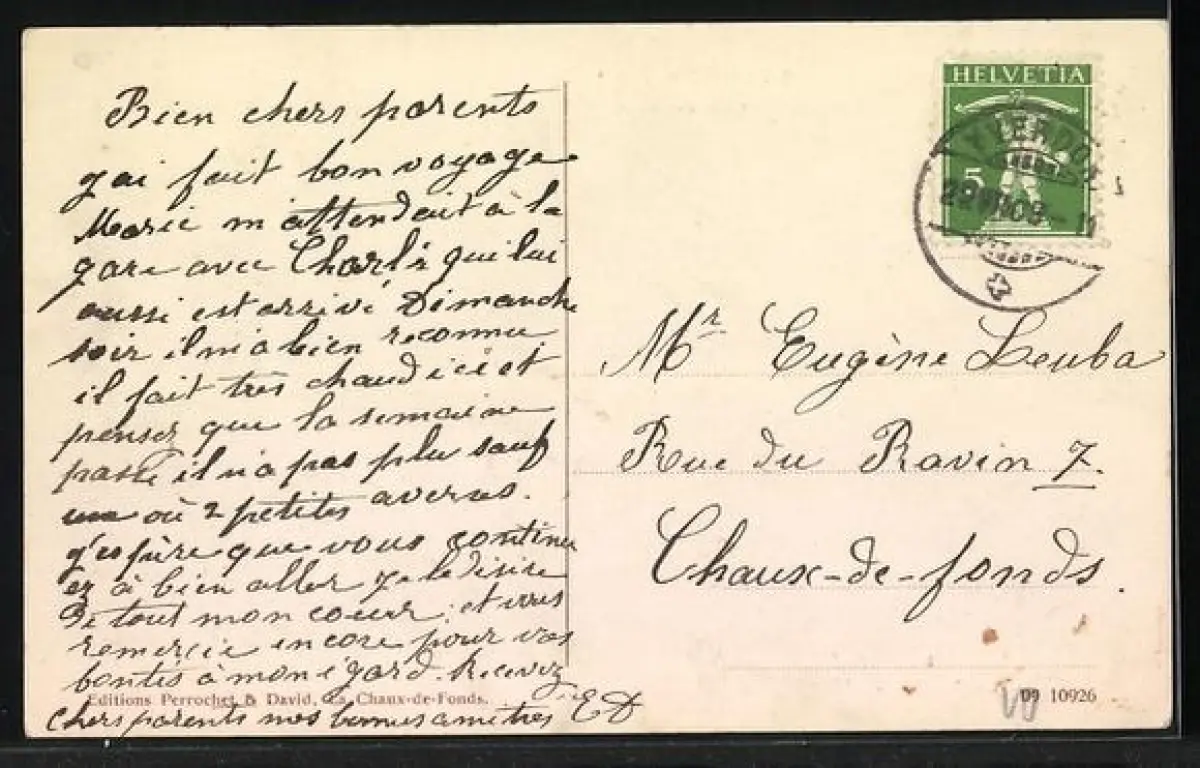 Bien chers parents
j'ai fait bon voyage
Marie m'attendait à la
gare avec Charle qui lui
aussi est arrivé Dimanche
soir il m'a bien reconnu
il fait très chaud ici et
pensez que la semaine
passé il n'a pas plu sauf
une où 2 petites averses.
j'espère que vous continu
ez à bien aller je le désire
de tout mon coeur et vous
remercie encore pour vos
bontés à mon égard. Recevez
chers parents mes
ED
Editions Perrochet & David, La Chaux-de-Fonds.
HELVETIA
5
Mr Eugène Leuba
Rue du Ravin 7.
Chaux-de-fonds.
09 10926